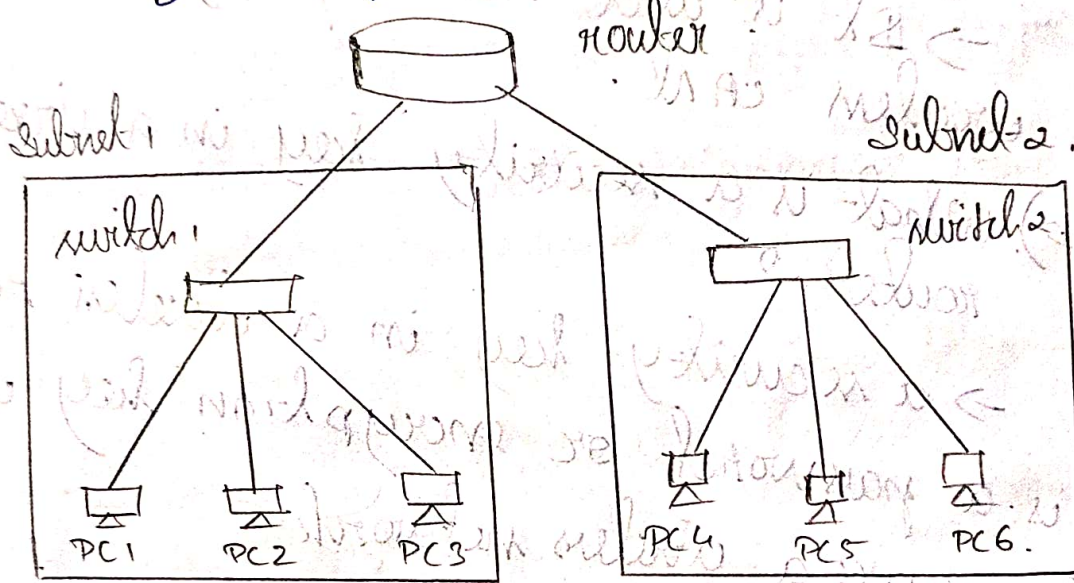 router
Subnet 1
Subnet-2.
switch 1
switch 2.
PC1
PC2
PC3
PC4
PC5
PC6.